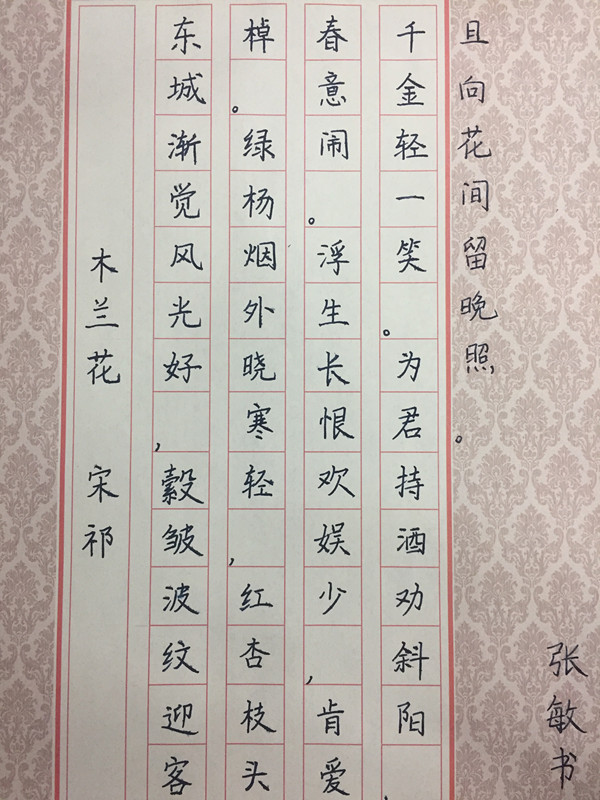 木兰花 宋祁
东城渐觉风光好,縠皱波纹迎客
棹。绿杨烟外晓寒轻,红杏枝头
春意闹。浮生长恨欢娱少,肯爱
千金轻一笑。为君持酒劝斜阳,
且向花间留晚照。
张敏书